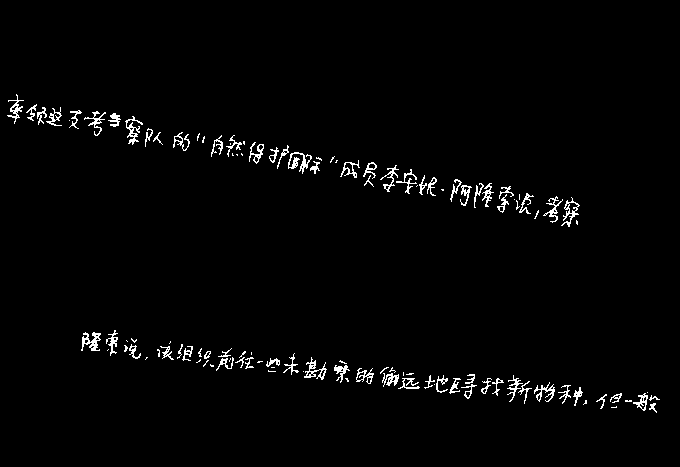 率领这支考察队的“自然保护国际”成员李安妮·阿隆索说，考察
隆索说，该组织前往一些未勘察的偏远地区寻找新物种，但一般